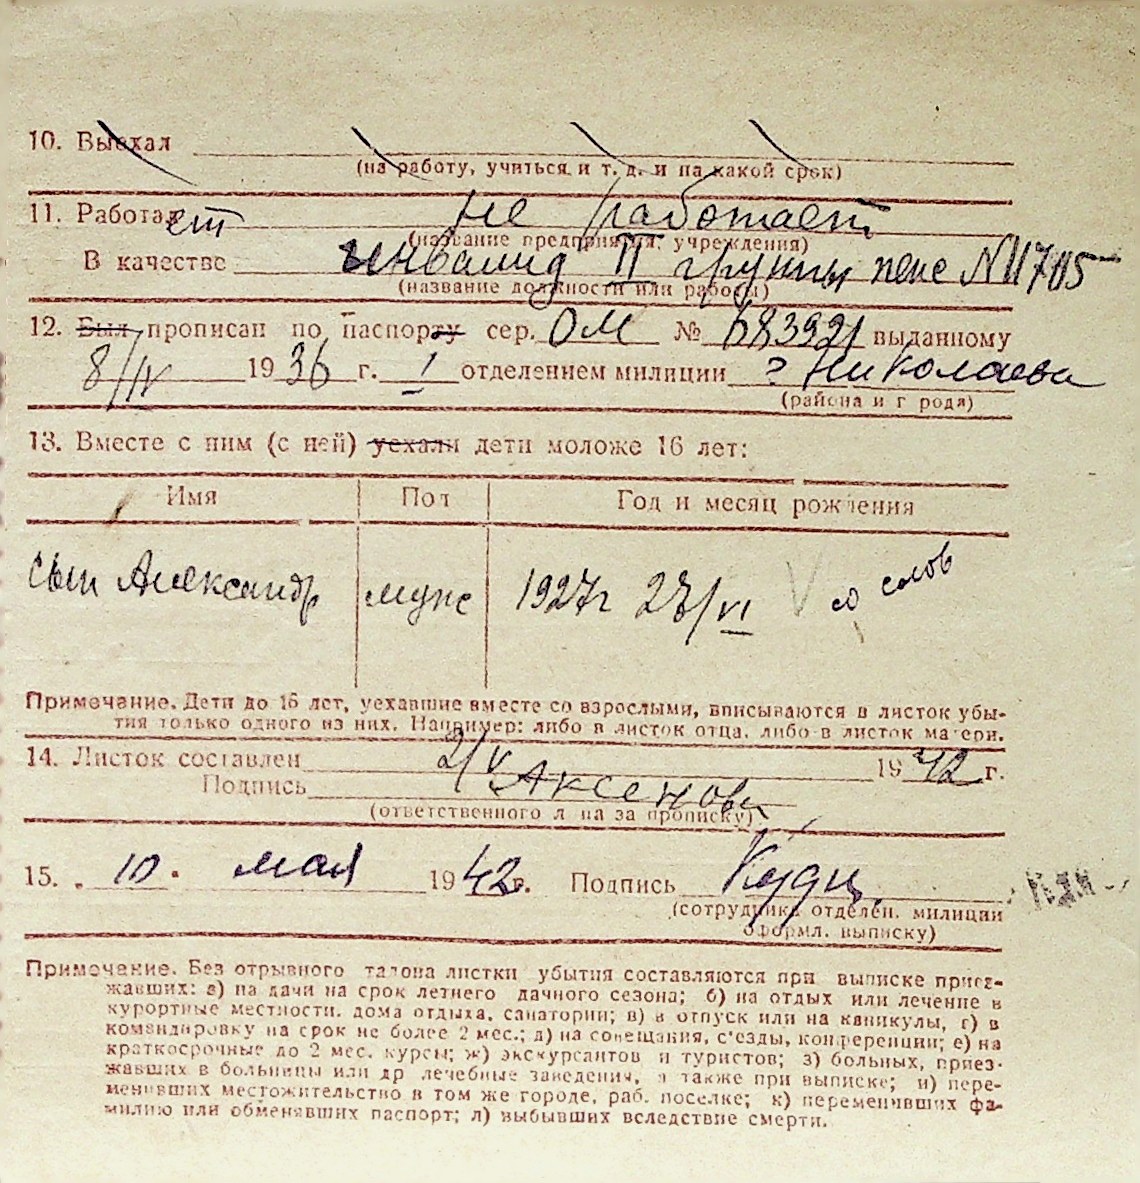 10. Выехал
(на работу, учиться и т. д. и на какой срок)
11. Работает не работает
(название предприятия, учреждения)
В качестве инвалид II группы пенс N11705
(название должности или работы)
12. Был прописан по паспорту сер. ОМ № 683921 выданному
8/IV 1936 г. I отделением милиции г Николаева
(района и г рода)
13. Вместе с ним (с ней) уехали дети моложе 16 лет:
Имя Пол Год и месяц рождения
сын Александр мужс 1927г 23/VI V со слов
Примечание. Дети до 16 лет, уехавшие вместе со взрослыми, вписываются в листок убы-
тия только одного из них. Например: либо в листок отца, либо в листок матери.
14. Листок составлен 2/V 1942 г.
Подпись Аксенова
(ответственного л на за прописку)
15. „ 10 " мая 1942 г. Подпись Кудц
(сотрудника отделен. милиции
оформл. выписку)
Примечание. Без отрывного талона листки убытия составляются при выписке приез-
жавших: а) на дачи на срок летнего дачного сезона; б) на отдых или лечение в
курортные местности, дома отдыха, санатории; в) в отпуск или на каникулы, г) в
командировку на срок не более 2 мес.; д) на совещания, с'езды, конференции; е) на
краткосрочные до 2 мес. курсы; ж) экскурсантов и туристов; з) больных, приез-
жавших в больницы или др лечебные заведения, а также при выписке; и) пере-
менивших местожительство в том же городе, раб. поселке; к) переменивших фа-
милию или обменявших паспорт; л) выбывших вследствие смерти.